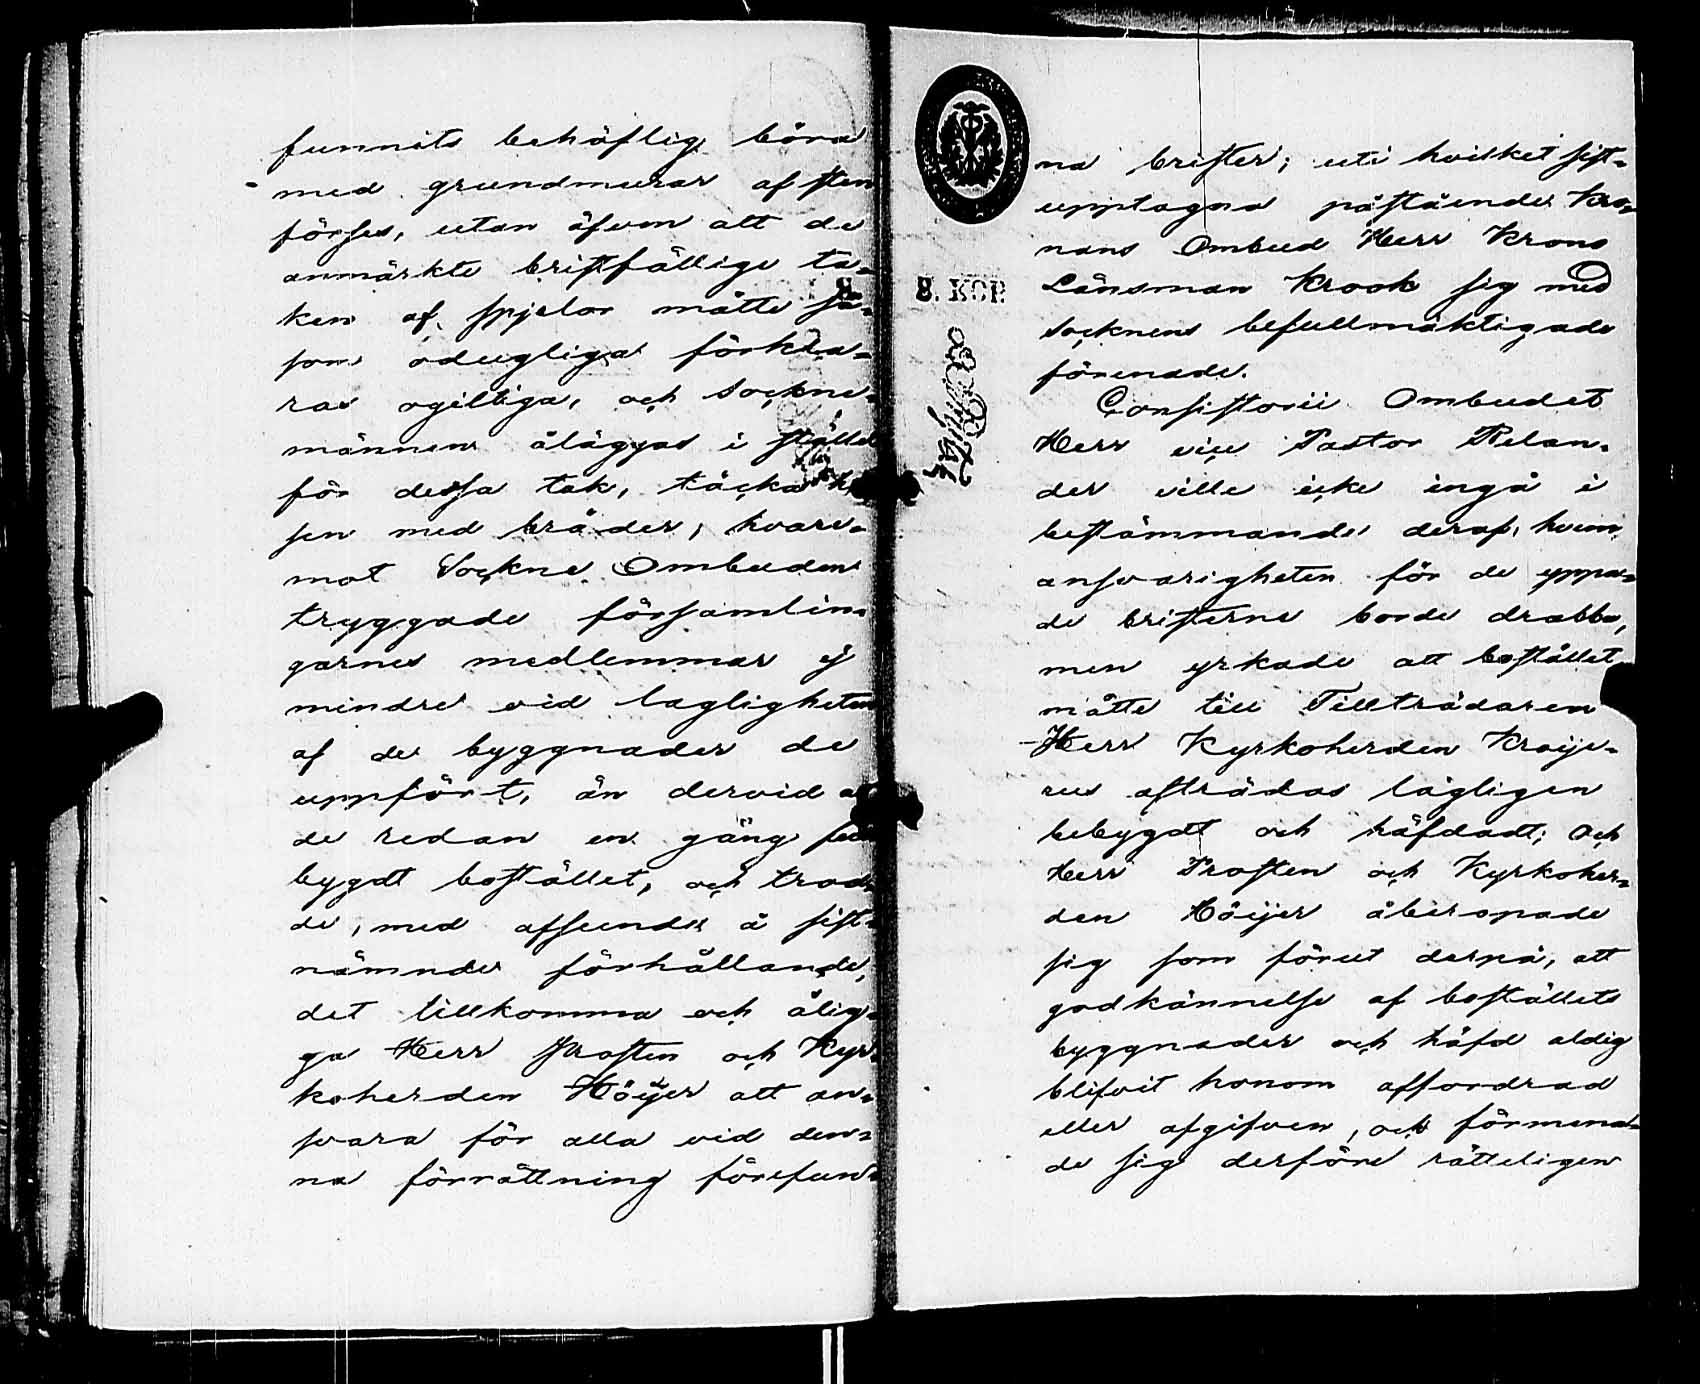 funnits behöflig böra
med grundmurar af sten
förses, utan äfven att de
anmärkte bristfällige ta-
ken af spjelor måtte så-
som odugliga förkla-
ras ogiltiga, och Sockne-
männen åläggas i stället
för dessa tak, täcka
sen med bräder; hvare-
mot Sockne Ombuden
tryggade församlin-
garnes medlemmar ej
mindre vid lagligheten
af de byggnader de
uppfört, än dervid att
de redan en gång full
bygdt bostället, och trod-
de, med afseende å sist-
nämnde förhållande,
det tillkomma och ålig-
ga Herr Prosten och Kyr-
koherden Höijer att an-
svara för alla vid den-
na förrättning förefun-
8. KOP.
na brister; uti hvilket sist-
upptagna påstående Kro-
nans Ombud Herr Krono
Länsman Krook sig med
Socknens befullmäktigade
förenade.
Consistorii Ombudet
Herr vice Pastor Relan-
der ville icke ingå i
bestämmande deraf, hvem
ansvarigheten för de yppa-
de bristerne borde drabba,
men yrkade att bostället
måtte till Tillträdaren
Herr Kyrkoherden Kroije-
rus afträdas lagligen
bebygdt och häfdadt; Och
Herr Prosten och Kyrkoher-
den Höijer åberopade
sig som förut derpå, att
godkännelse af boställets
byggnader och häfd aldig
blifvit honom affordrad
eller afgifven, och förmena-
de sig derföre rätteligen